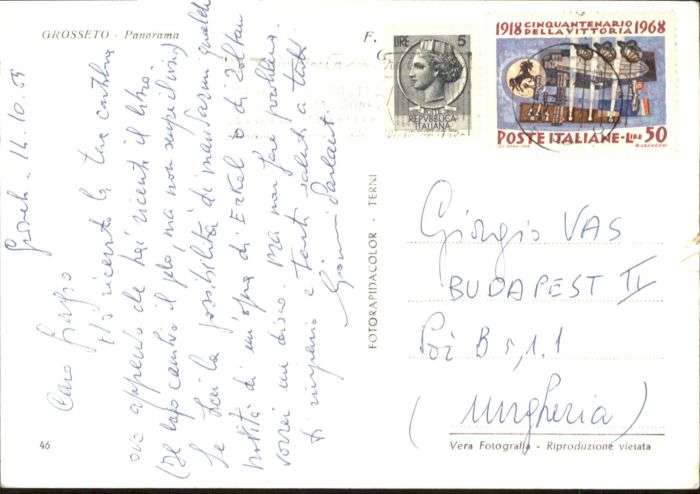 GROSSETO - Panorama
Caro Giorgio
Ho ricevuto la tua cartolina
ove apprendo che hai ricevuto il libro.
(Il lupo cambia il pelo, ma non
Se hai la possibilità di mandarmi qualche
di un'opera di Erkel o di Zoltan
vorrei un disco. Ma non fare problema.
Ti ringrazio e tanti saluti a tutti
Gianni
LIRE 5
REPVBBLICA
ITALIANA
1918 CINQUANTENARIO DELLA VITTORIA 1968
POSTE ITALIANE - LIRE 50
FOTORAPIDACOLOR - TERNI
Giorgio VAS
BUDAPEST II
1.1
(Ungheria)
46
Vera Fotografia - Riproduzione vietata